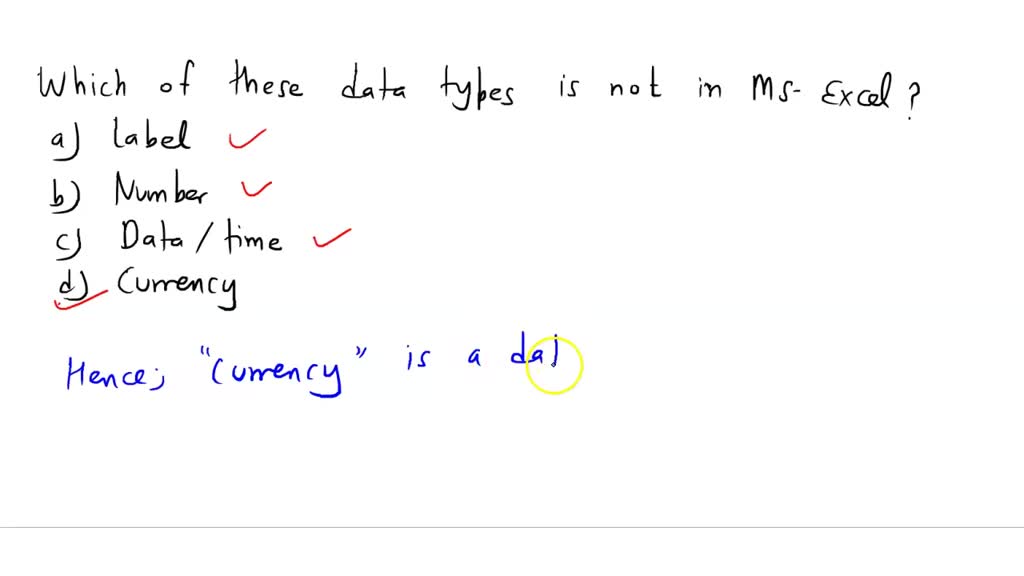 Which of these data types is not in Ms-Excel?
a) label
b) Number
c) Data/time
d) Currency
Hence; "Currency" is a dat